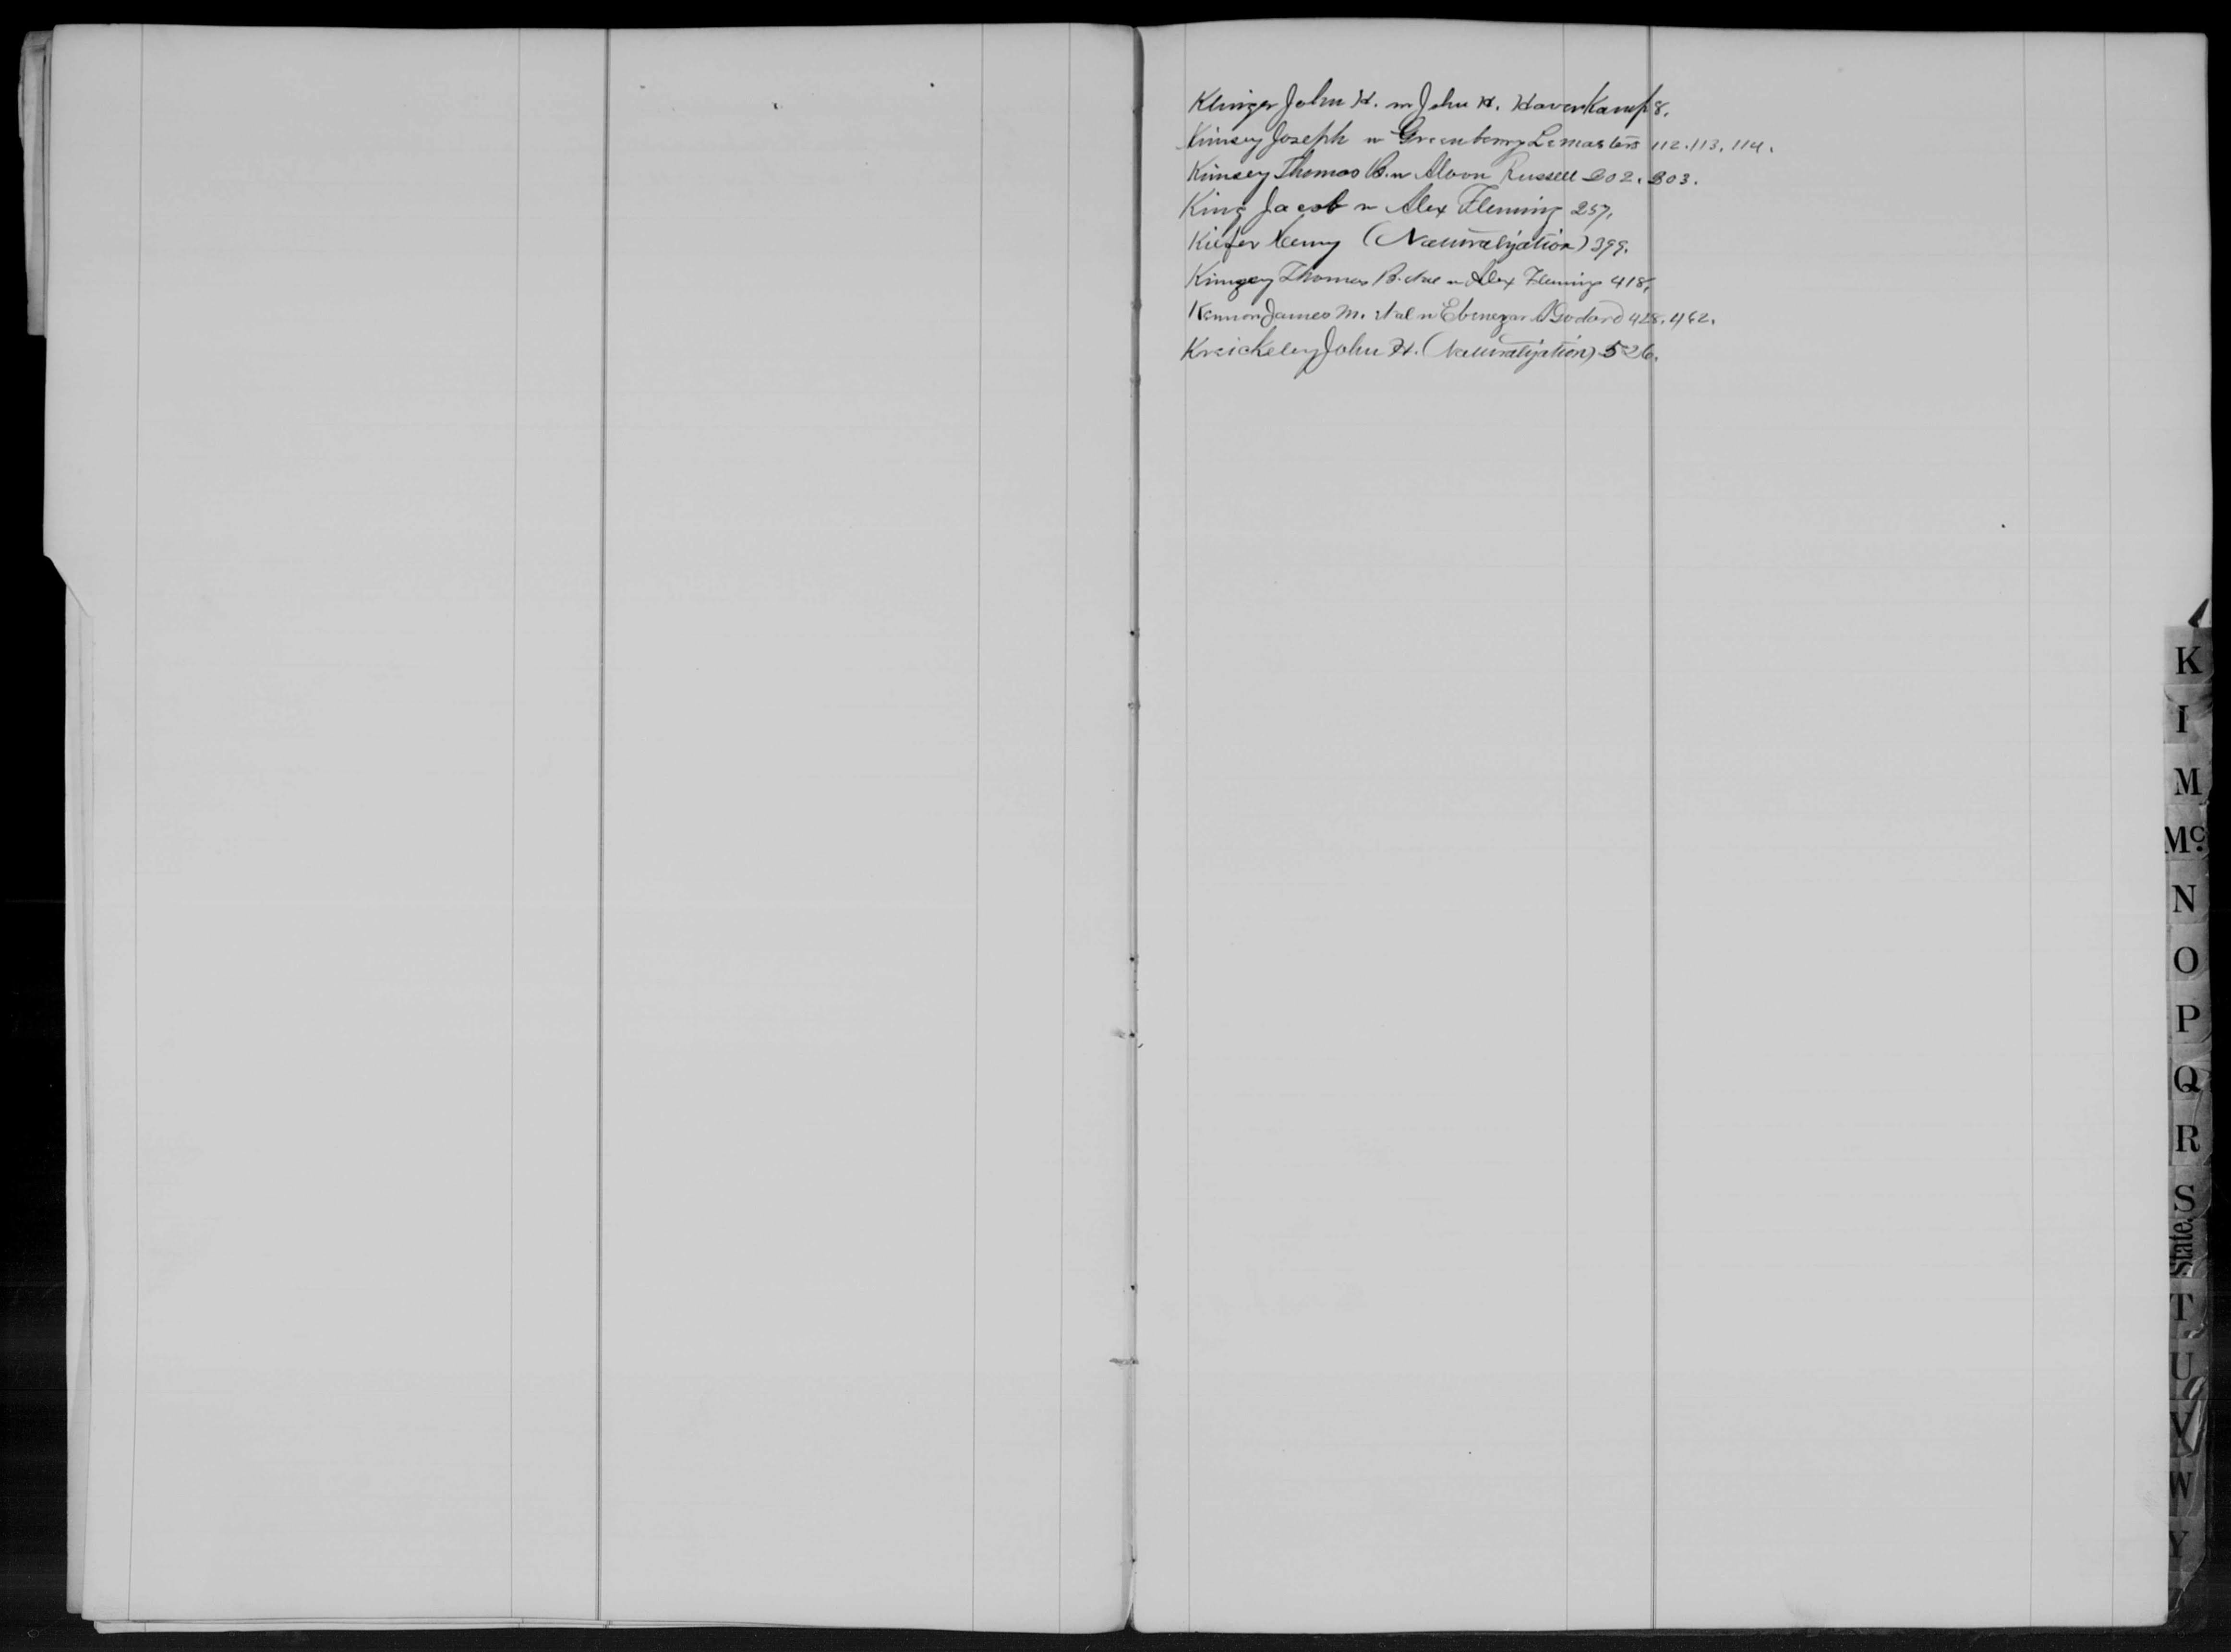 Klinger John H. v John H. HaverKamp 8.
Kimsey Joseph v Greenberry Lemasters 112. 113. 114.
Kimsey Thomas B. v Alvon Russell 202. 203.
King Jacob v Alex Fleming 257.
Kiefer Henry (Naturalization) 399.
Kimsey Thomas B. et al v Alex Fleming 418.
Kennon James M. et al v Ebenezer Godard 428. 462.
John H. (Naturalization) 526.
K
I
M
Mc.
N
O
P
Q
R
S
State.
T
U
V
W
Y